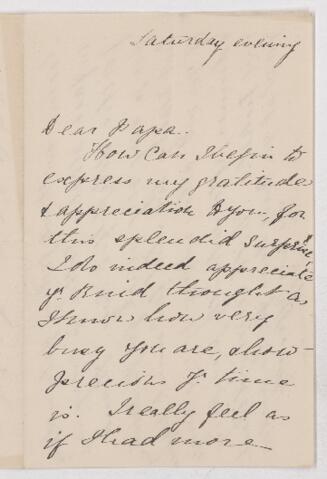 Saturday evening
Dear Papa.
How can I begin to
express my gratitude
& appreciation to you, for
this splendid surprise,
I do indeed appreciate
yr. kind thought as
I know how very
busy you are, & how
precious yr. time
is. I really feel as
if I had more